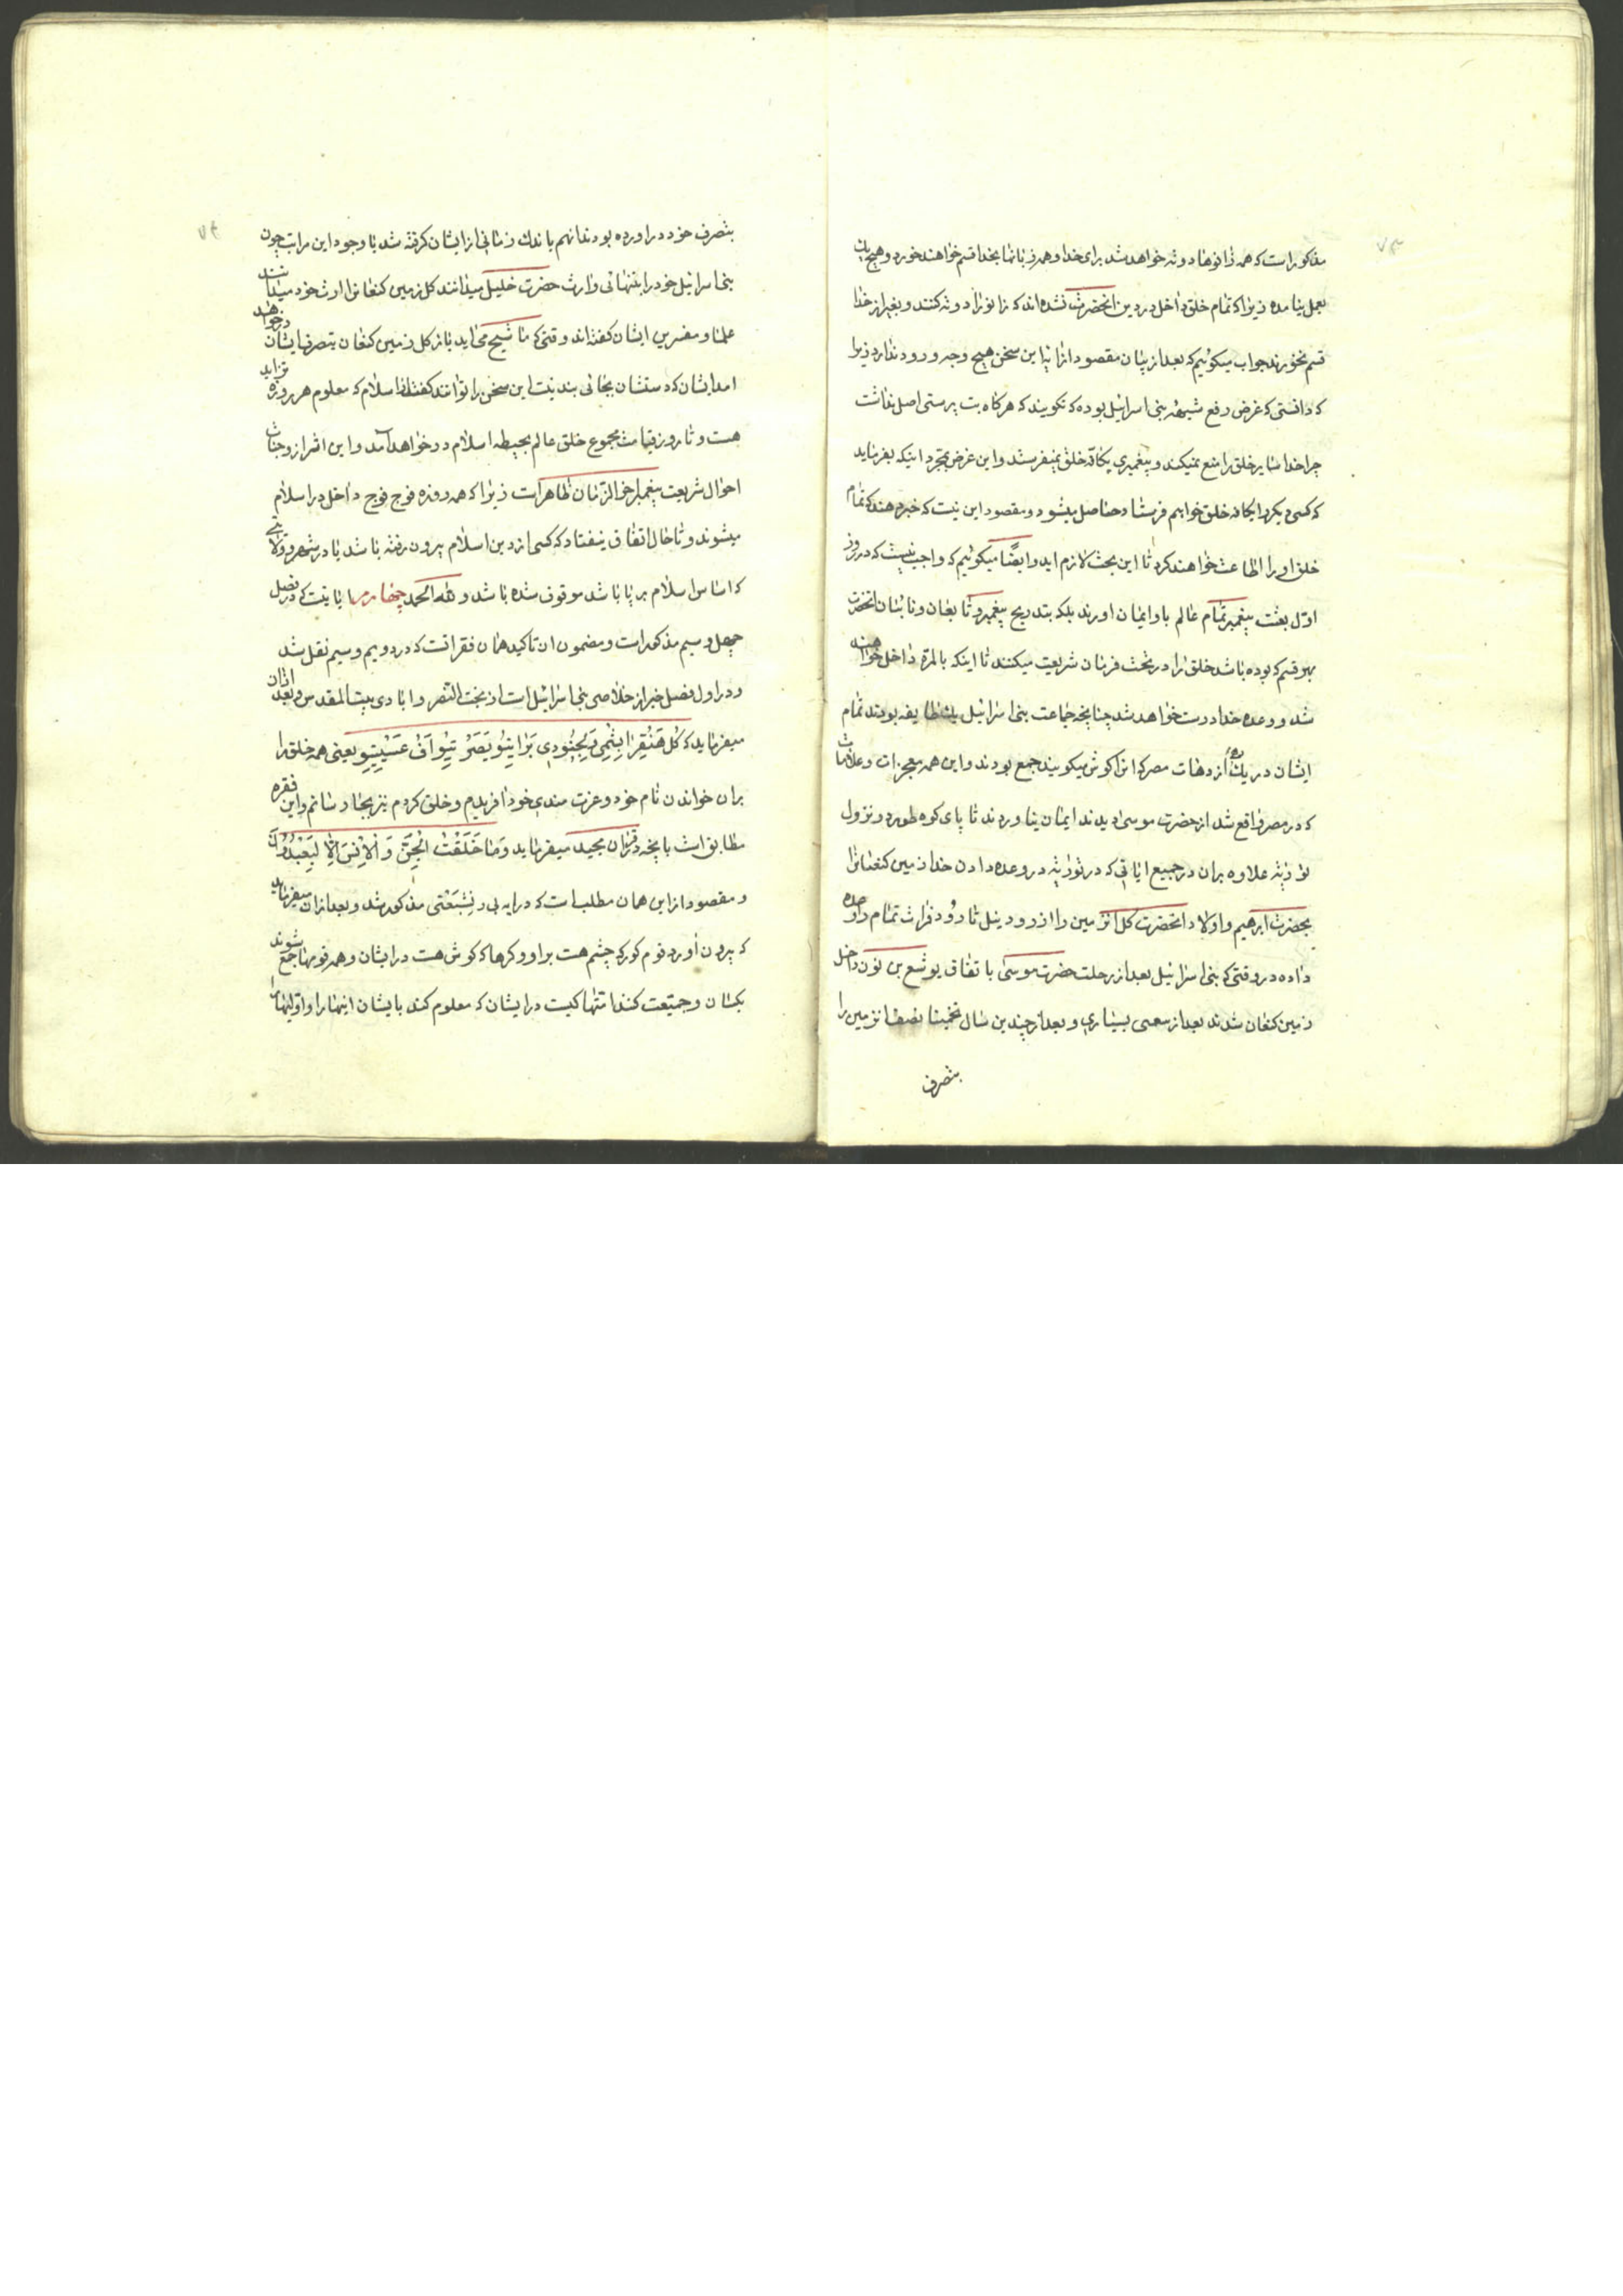 ۷۳
مذکور است که همه زانوها دوته خواهد شد برای خدا و همه زبانها بخدا قسم خواهند خورد و هیچ یک
بعمل نیامده زیرا که تمام خلق داخل در دین انحضرت نشده‌اند که زانو را دوته کنند و بغیر از خدا
قسم نخورند جواب میکوئیم که بعد از بیان مقصود از ایه این سخن هیچ وجه ورود ندارد زیرا
که دانستی که غرض رفع شبهه بنی اسرائیل بوده که نکویند که هرکاه بت پرستی اصل نداشت
چرا خدا سایر خلق را منع نمیکند و پیغمبری بکافه خلق نمیفرستد و این غرض بمجرد اینکه بفرماید
که کسی دیکر را بکافه خلق خواهم فرستاد حاصل میشود و مقصود این نیست که خبر دهند که تمام
خلق او را اطاعت خواهند کرد تا این بحث لازم اید و ایضًا میکوئیم که واجب نیست که در روز
اول بعثت پیغمبر تمام عالم باو ایمان اورند بلکه بتدریج پیغمبر و تابعان و نائبان انحضرت
بهر قسم که بوده باشد خلق را در تحت فرمان شریعت میکنند تا اینکه بالمرة داخل خواهند
شد و وعده خدا درست خواهد شد چنانچه جماعت بنی اسرائیل یک طایفه بودند تمام
ایشان در یک ده از دهات مصر که انرا کوشن میکویند جمع بودند و این همه معجزات و علامات
که در مصر واقع شد از حضرت موسی دیدند ایمان نیاوردند تا پای کوه طور و نزول
توریة علاوه بران در جمیع ایاتی که در توریة در وعده دادن خدا زمین کنعانرا
بحضرت ابرهیم و اولاد انحضرت کل انزمین را از رود نیل تا رود فرات تمام را وعده
داده در وقتی که بنی اسرائیل بعد از رحلت حضرت موسی باتفاق یوشع بن نون داخل
زمین کنعان شدند بعد از سعی بسیاری و بعد از چندین سال تخمینا نصف انزمین را
بتصرف
۷۴
بتصرف خود دراورده بودند انهم باندک زمانی از ایشان کرفته شد با وجود این مراتب چون
بنی اسرائیل خود را بتنهائی وارث حضرت خلیل میدانند کل زمین کنعانرا ارث خود میدانستند
علما و مفسرین ایشان کفته‌اند وقتی که ماشیح می‌اید باز کل زمین کنعان بتصرف ایشان در خواهد
امد ایشان که دستشان بجائی بند نیست این سخن را توانند کفت اما اسلام که معلوم هر روزه در تزاید
هست و تا روز قیامت مجموع خلق عالم بحیطه اسلام در خواهد آمد و این اثر از وجنات
احوال شریعت پیغمبر اخر الزمان ظاهر است زیرا که همه روزه فوج فوج داخل در اسلام
میشوند و تا حال اتفاق نیفتاد که کسی از دین اسلام بیرون رفته باشد یا در شهر و ولایتی
که اساس اسلام برپا باشد موقوف شده باشد و لله الحمد چهارم ایاتیست که در فصل
چهل و سیم مذکور است و مضمون ان تاکید همان فقرانست که در دویم و سیم نقل شد
و در اول فصل خبر از خلاصی بنی اسرائیل است از بخت النصر و ابادی بیت المقدس و بعد از ان
میفرماید که کُل هَنِّقِرا بِشْمِی وَلِخْبُودِی بَراتِیوْ یَصَرْتِیوْ اَفْ عَسِیتِیوْ یعنی همه خلق را
بران خواندن نام خود و عزت مندی خود افریدم و خلق کردم نیز بجا رسانم و این فقره
مطابق است بانچه در قران مجید میفرماید وَمَا خَلَقْتُ الْجِنَّ وَ الْاِنْسَ اِلّا لِیَعْبُدُونَ
و مقصود از این همان مطلب است که در ایه بی نِشْبَعْتی مذکور شد و بعد از ان میفرماید
که بیرون آورد قوم کور که چشم هست بر او و کرها که کوش هست در ایشان و همه قومها جمع شوند
یکسان و جمیعت کنند امتها کیست در ایشان که معلوم کند بایشان اینها را و اولینها را